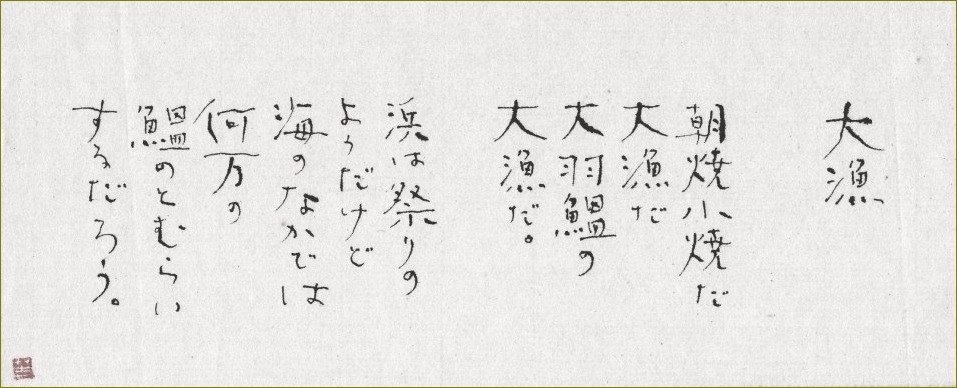 大漁
朝焼小焼だ
大漁だ
大羽鰮の
大漁だ。
浜は祭りの
ようだけど
海のなかでは
何万の
鰮のとむらい
するだろう。